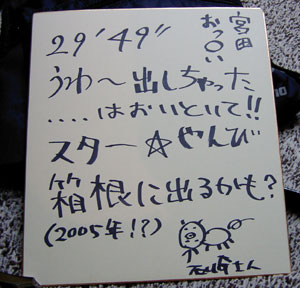 宮田
おっ○い
29'49"
うわ〜出しちゃった
....はおいといて!!
スター☆やんび
箱根に出るかも?
(2005年!?)